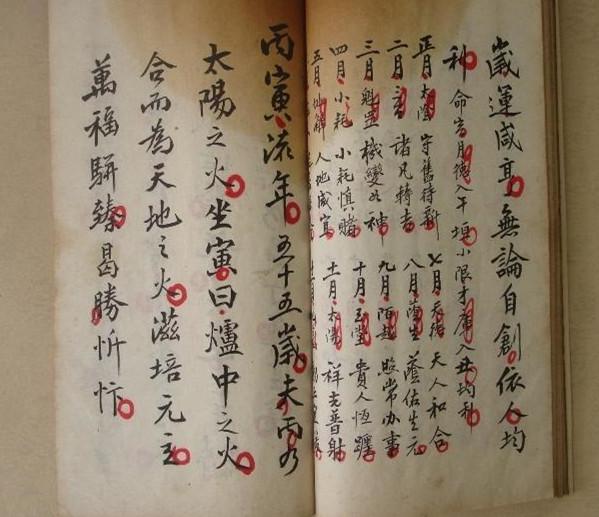 歲運咸亨無論自創依人均
利命宮月德入午垣小限才庫入丑均利
正月太陰守舊待新
七月天德天人和合
二月
諸凡轉吉
八月蔭生蔭佑生元
三月魁罡機變如神
九月陌越照常办事
四月小耗小耗慎賭
十月玉堂貴人恆躔
五月
人地咸宜
十一月太陽祥光普射
丙寅流年五十五歲夫丙乃
太陽之火坐寅曰爐中之火
合而為天地之火滋培元立
萬福駢臻曷勝忻忭